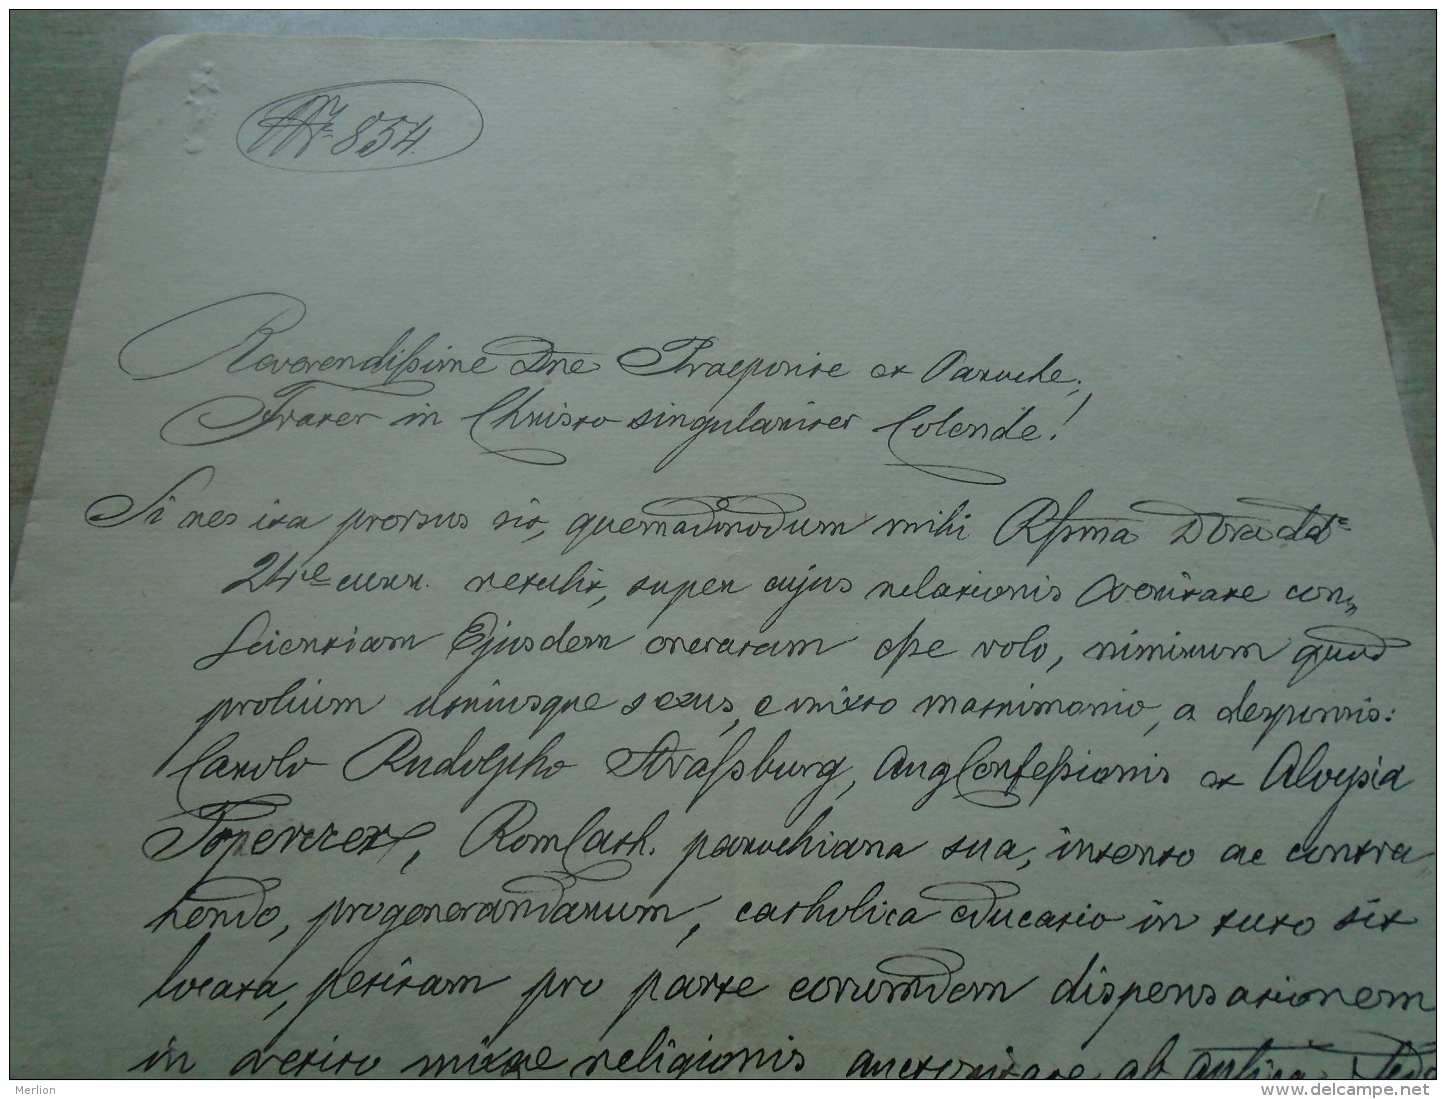 Nr 854.
Reverendissime Dne Praeposite et Paroche,
Frater in Christo singulariter Colende!
Si res ita prorsus sit, quemadmodum mihi Rssma Dvrao ddto
24te curr. retulit, super cujus relationis veritate con„
scientiam Ejusdem oneratam esse volo, nimirum quod
prolium utriusque sexus, e mixto matrimonio, a desponsis:
Carolo Rudolpho Straßburg, Aug Confessionis et Aloysia
Rom Cath. parochiana sua, intento ac contra
hendo, progenerandarum, catholica educatio in tuto sit
locata, petitam pro parte eorumdem dispensationem
in vetito mixtae religionis auctoritate ab
Merlion
www.delcampe.net